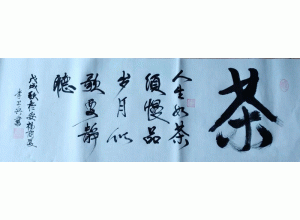 茶
人生如茶
须慢品
岁月似
歌要静
听
戊戌秋于